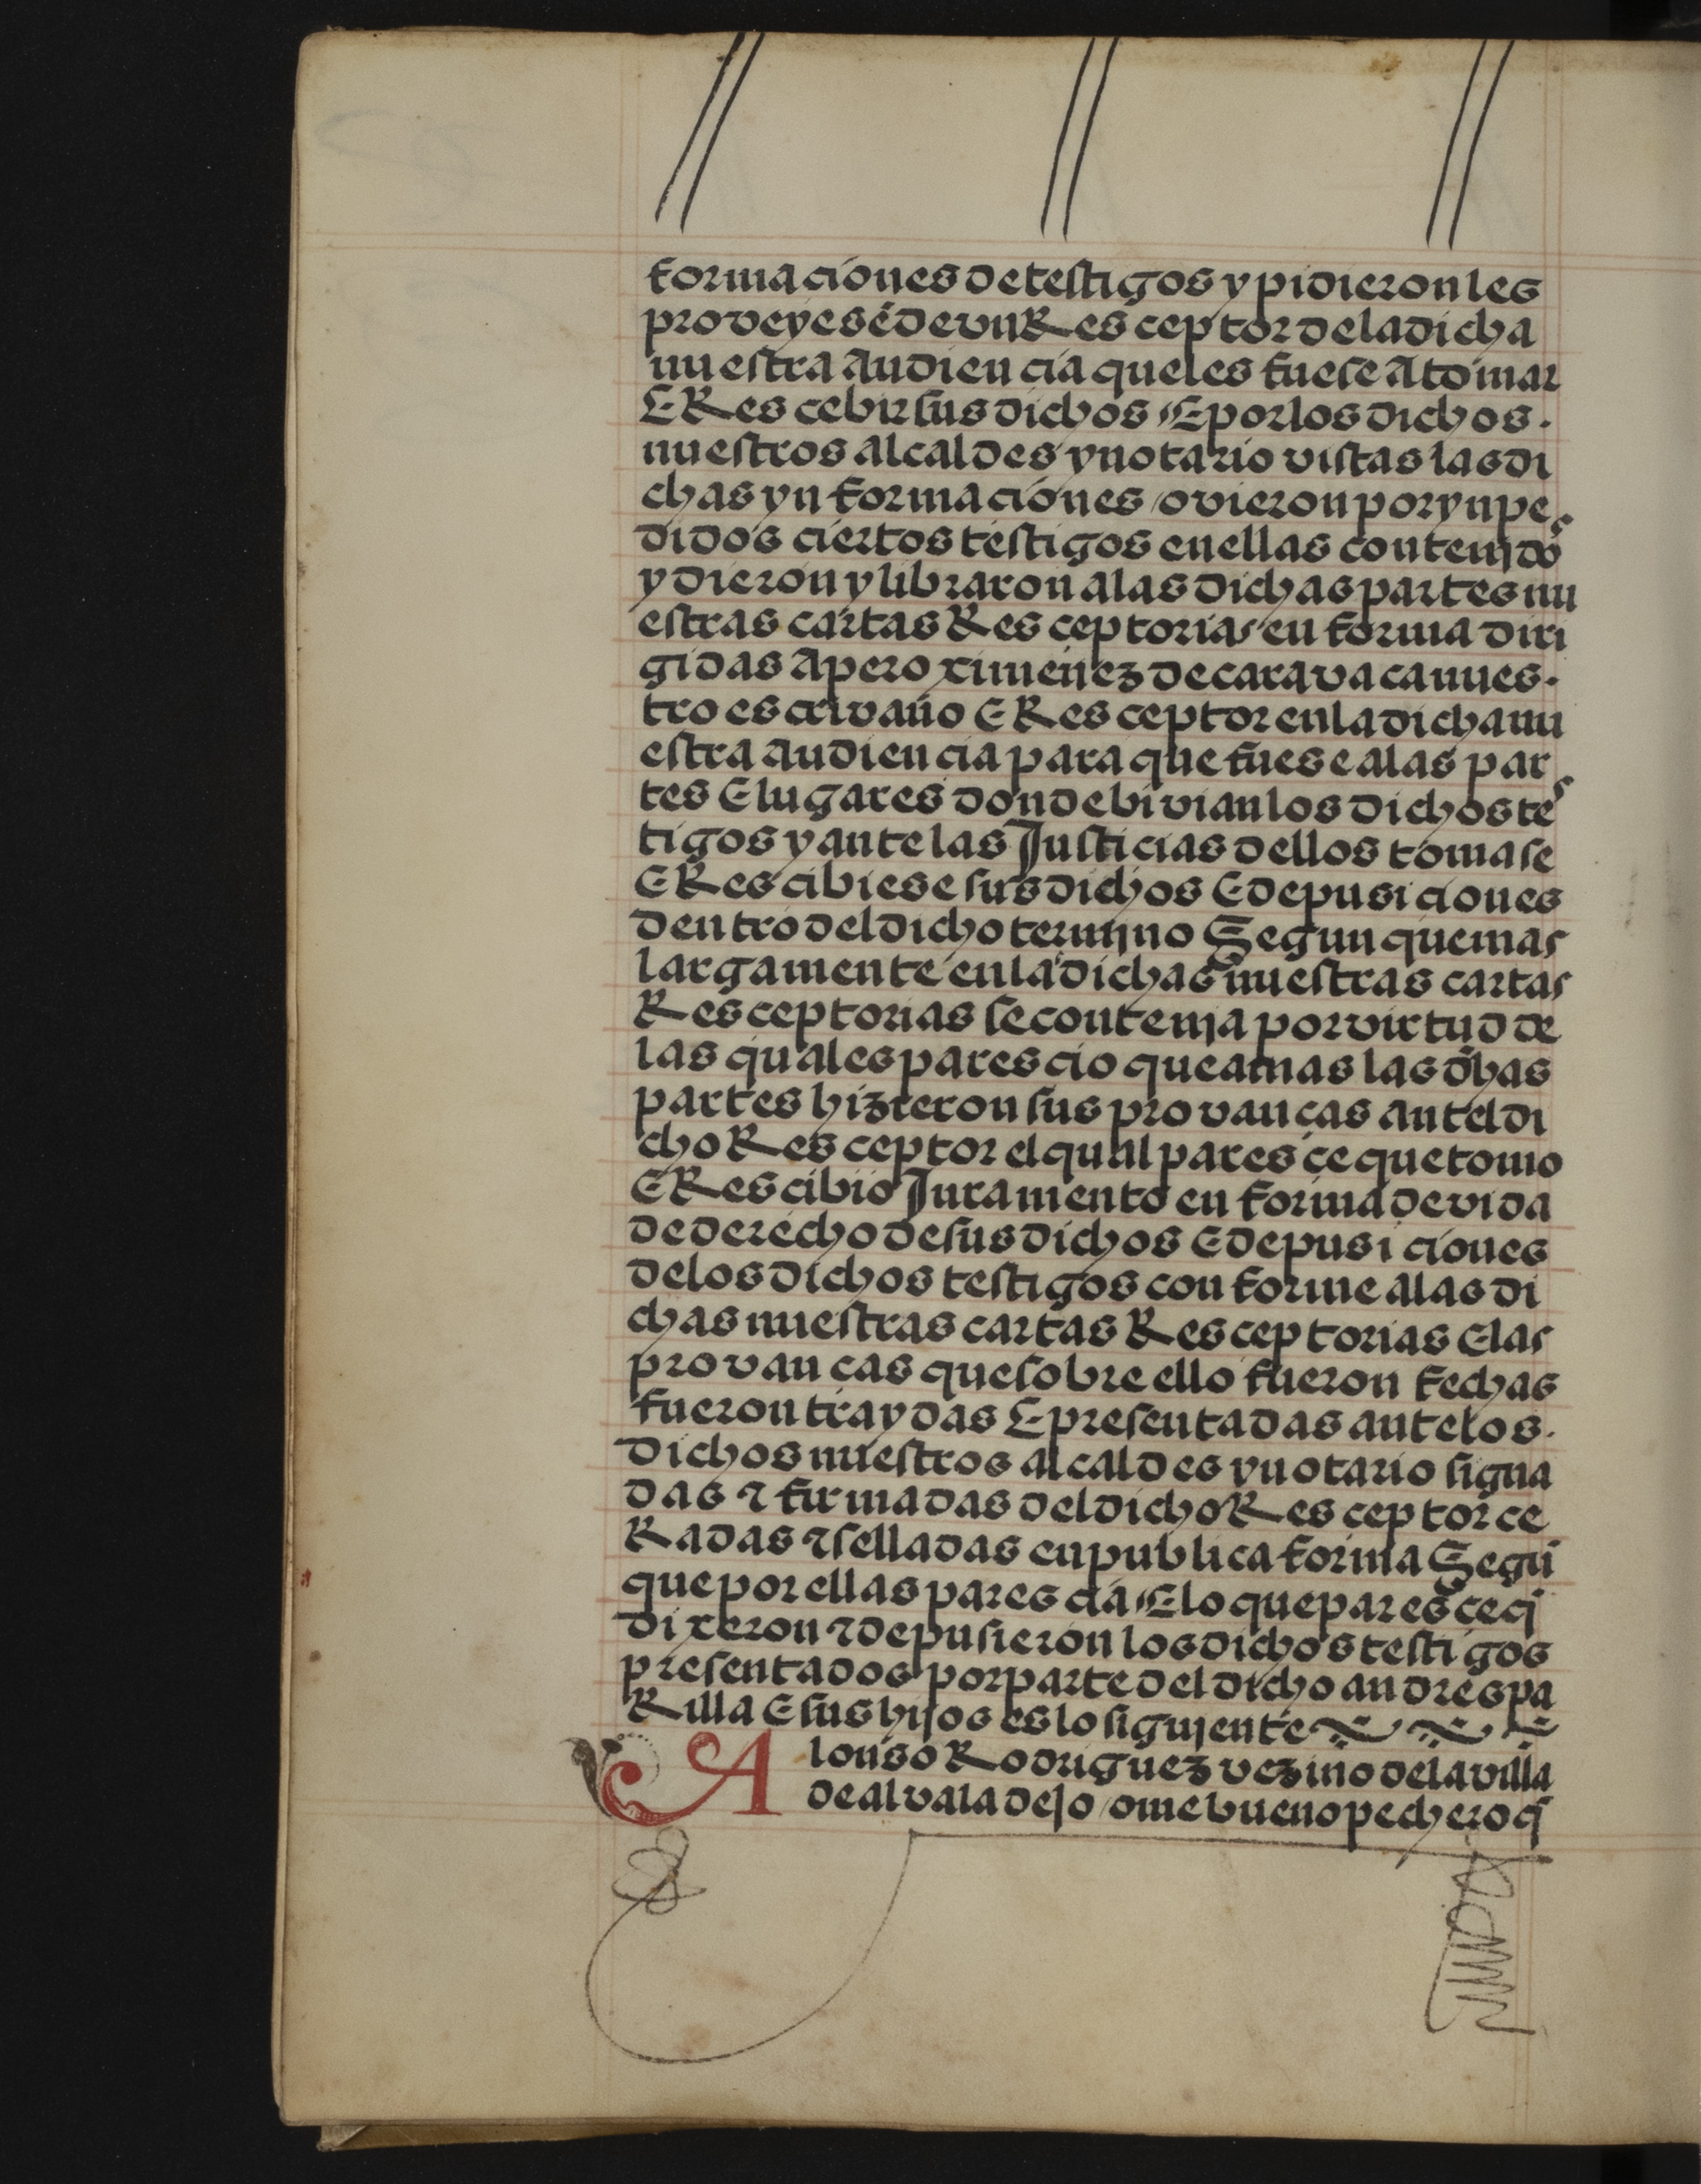 formaciones de testigos y pidieron les
proveyesẽ de vn Resceptor de la dicha
nuestra Audiencia que les fuese A tomar
E Rescebir sus dichos / E por los dichos.
nuestros alcaldes y notario vistas las di
chas ynformaciones / ovieron por ynpe
didos ciertos testigos en ellas contenjdos
y dieron y libraron a las dichas partes nu
estras cartas Resceptorias en forma diri
gidas A pero ximenez de caravaca nues.
tro escrivano E Resceptor en la dicha nu
estra Audiencia para que fuese a las par
tes E lugares donde bivian los dichos tes
tigos y ante las Justicias dellos tomase
E Rescibiese sus dichos E depusiciones
dentro del dicho termjno Segun que mas
largamente en las dichas nuestras cartas
Resceptorias se contenja por virtud de
las quales parescio que amas las dhas
partes hizieron sus provancas antel di
cho Resceptor el qual paresçe que tomo
E Rescibio Juramento en forma devida
de derecho de sus dichos E depusiciones
de los dichos testigos conforme a las di
chas nuestras cartas Resceptorias E las
provancas que sobre ello fueron fechas
fueron traydas E presentadas ante los.
dichos nuestros alcaldes y notario signa
das ⁊ firmadas del dicho Resceptor ce
Radas ⁊ selladas en publica forma Segũ
que por ellas parescia / E lo que paresce q̃
dixeron ⁊ depusieron los dichos testigos
presentados por parte del dicho andres pa
Rilla E sus hijos es lo siguiente
Alonso Rodriguez vezino de la villa
de alvaladejo / ome bueno pechero q̃